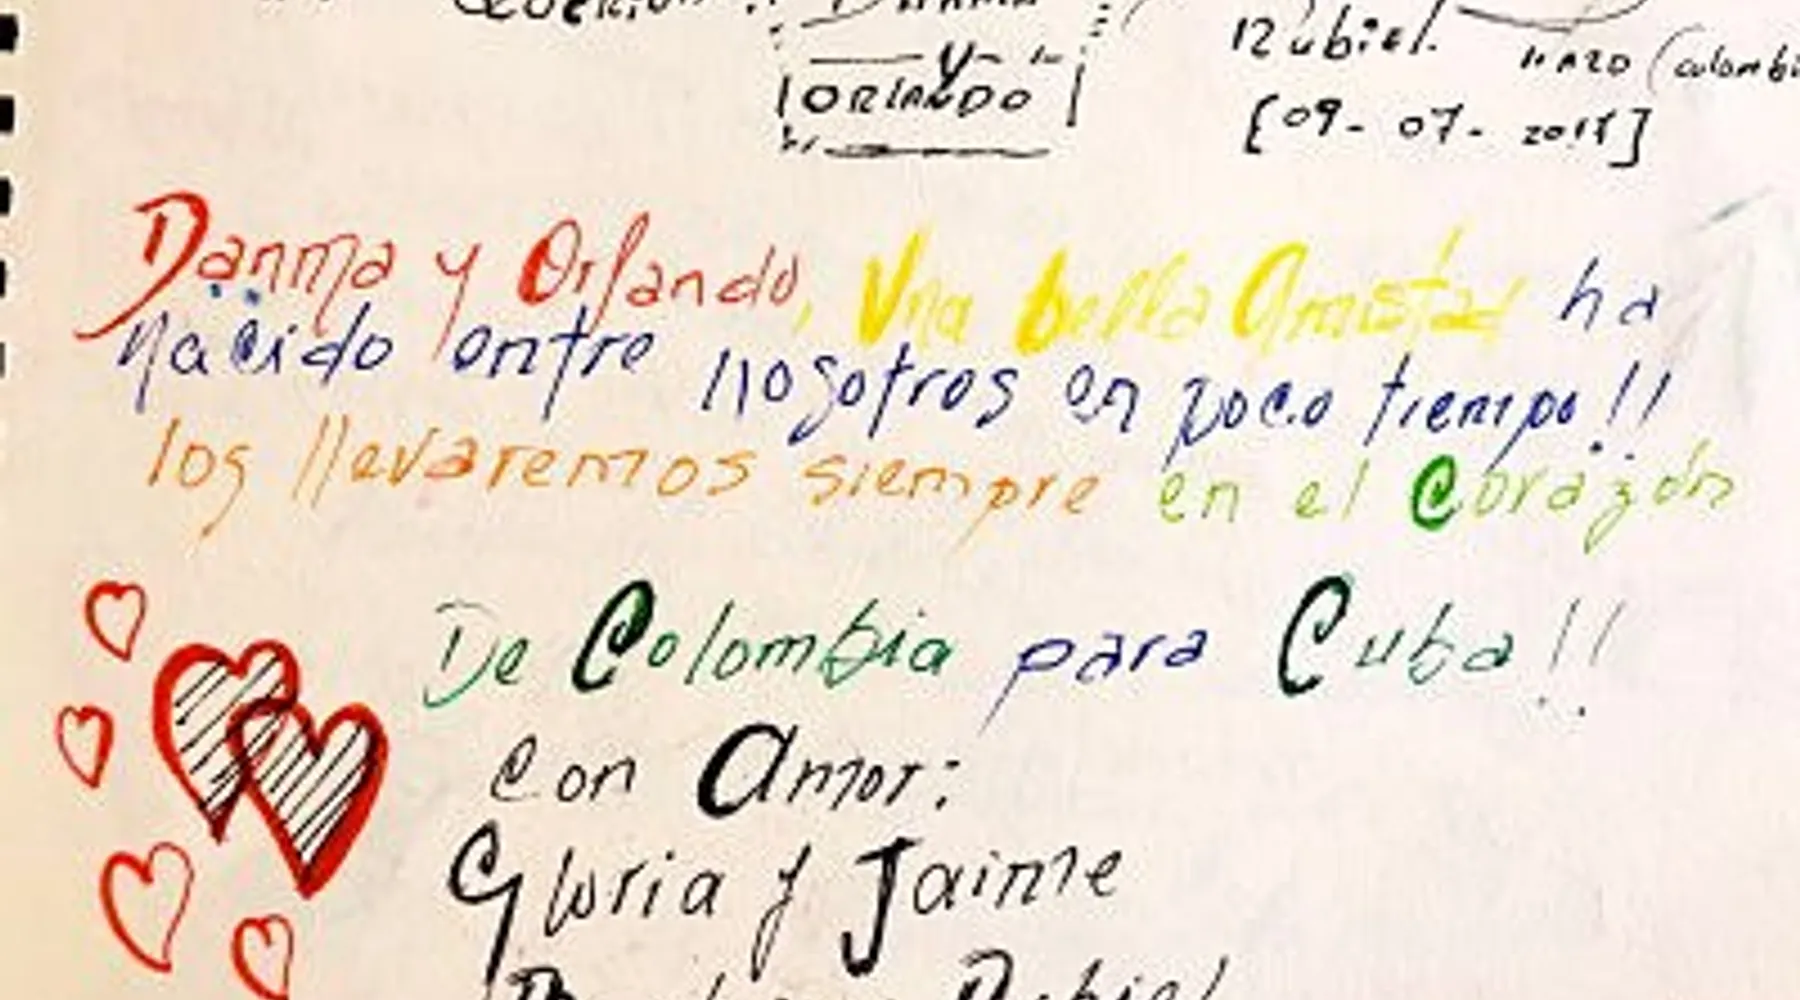 y
ORLANDO
Rubiel.
(colombi
[09-07-2018]
Danma y Orlando, Una bella Amistad ha
nacido entre nosotros en poco tiempo!!
los llevaremos siempre en el Corazón
De Colombia para Cuba!!
Con Amor:
Gloria y Jaime
Rubiel